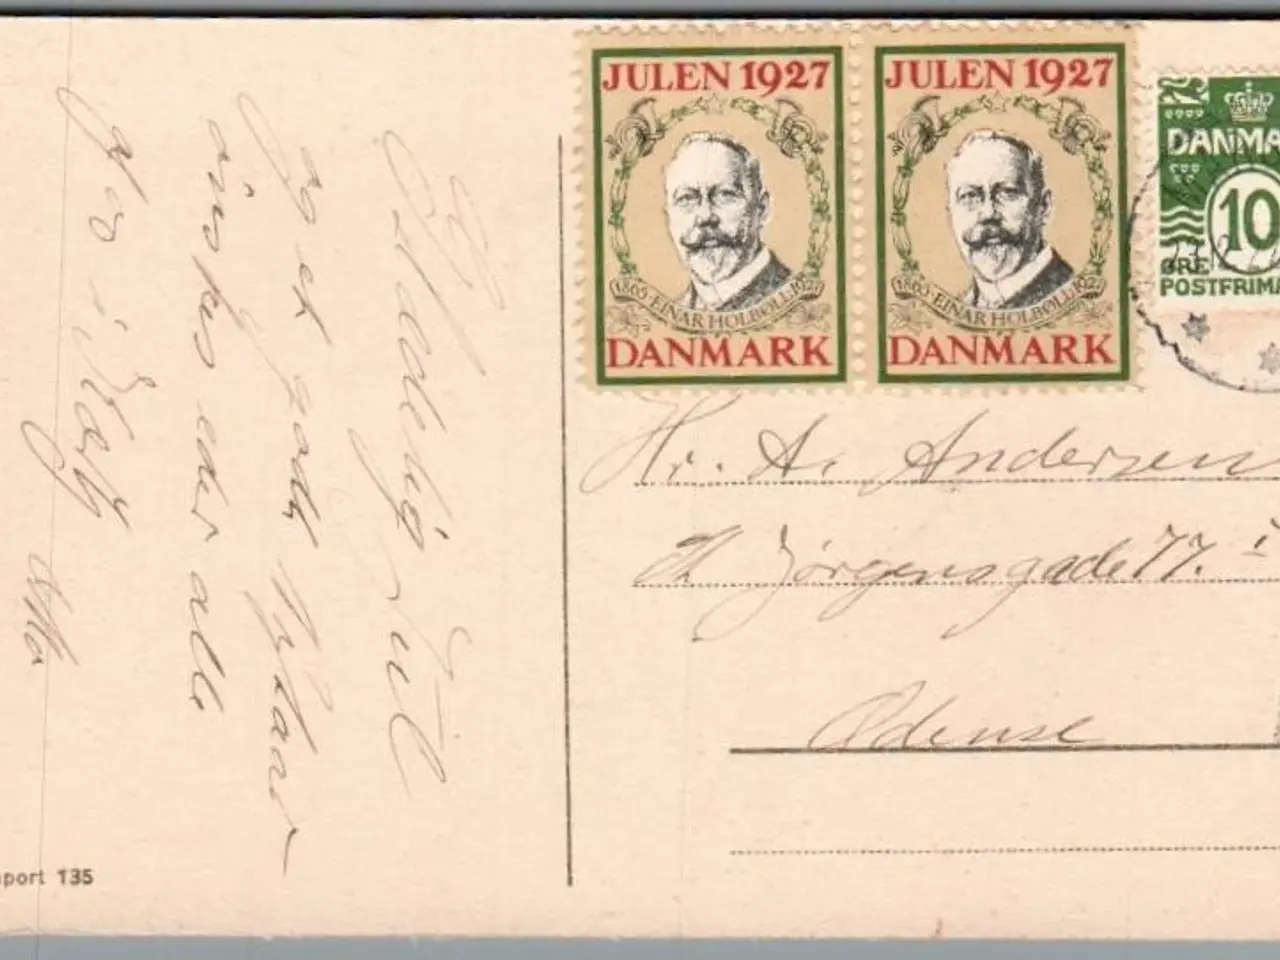 En Glædelig Jul
og et godt Nytaar
ønskes eder alle
Otto
JULEN 1927
1865·EINAR HOLBØLL·1927
DANMARK
JULEN 1927
1865·EINAR HOLBØLL·1927
DANMARK
DANMA
10
ØRE
POSTFRIMA
Hr. A. Andersen
Jørgensgade 77. I
Odense
port 135